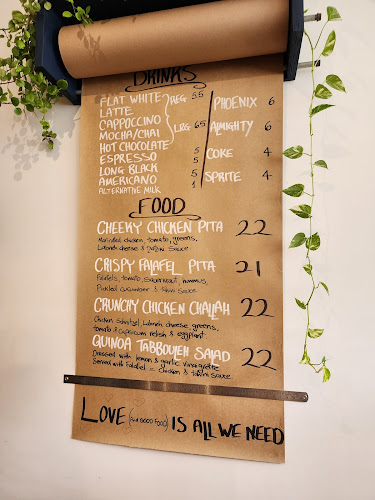 DRINKS
FLAT WHITE REG 5.5
LATTE
CAPPOCCINO
MOCHA/CHAI LRG 6.5
HOT CHOCOLATE
ESPRESSO 5
LONG BLACK 5
AMERICANO 5
ALTERNATIVE MILK 1
PHOENIX 6
ALMIGHTY 6
COKE 4
SPRITE 4
FOOD
CHEEKY CHICKEN PITA 22
Marinated chicken, tomato, greens,
Labneh cheese & Sauce
CRISPY FALAFEL PITA 21
Falafels, tomato, sauerkraut, hummus,
Pickled cucumber & Sauce
CRUNCHY CHICKEN CHALLAH 22
Chicken Schnitzel Labneh cheese greens,
tomato & Capsicum relish & eggplant.
QUINOA TABBOULEH SALAD 22
Dressed with lemon & garlic Vinaigrette
Served with Falafel or Chicken & tahini Sauce.
LOVE (and GOOD FOOD) IS ALL WE NEED